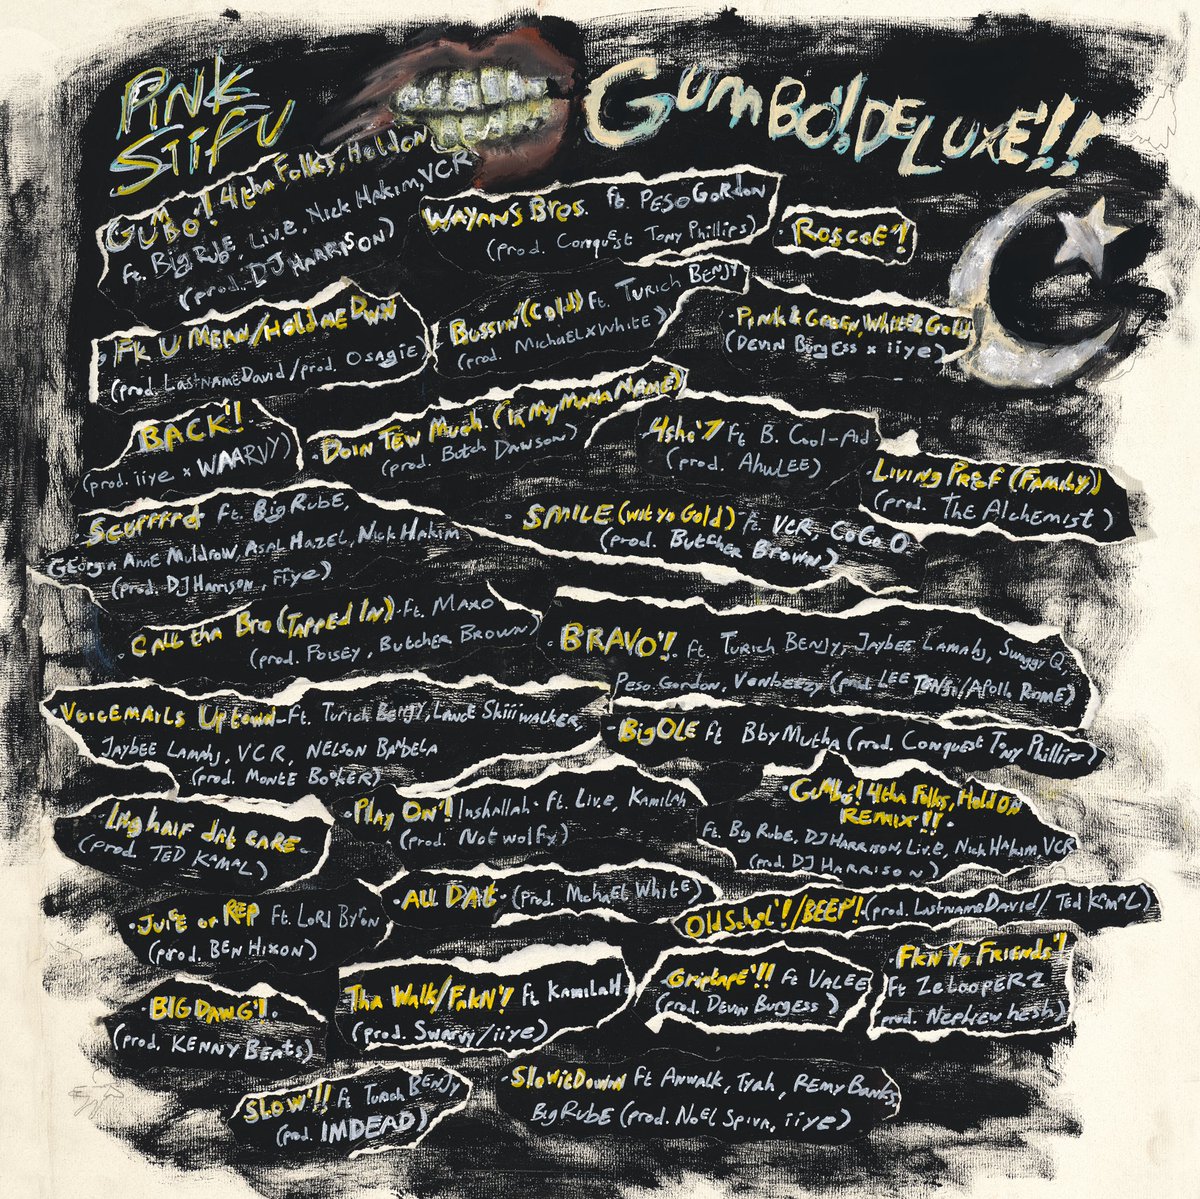 PiNK
SiiFU
GUMBO'! DELUXE'!!
GUMBO'! 4tha Folks, Hold on
ft. Big RUBE, Liv.e, Nick Hakim, VCR
(prod. DJ HARRISON)
WAYANS BROS. ft. PESO GORDON
(prod. Conquest Tony Phillips)
· ROSCOE'!
· FK U MEAN/HOLD ME DWN
(prod. LastnameDavid/prod. Osagie)
BUSSIN' (Cold) ft. TURICH BENJY
(prod. MichaelXWhite)
· PiNK & GREEN, WHITE & GOLD
(DEVIN BURGESS x iiye)
BACK'!
(prod. iiye x WAARVY)
· DOIN TEW MUCH (IN MY MAMA NAME)
(prod. Butch Dawson)
· 4sho'! ft B. Cool-Aid
(prod. AhwLEE)
· LIVING PROOF (FAMILY)
(prod. The Alchemist)
· Scurrrrd ft. Big RUBE,
GEORGIA ANNE MULDROW, ASAL HAZEL, Nick Hakim
(prod. DJ Harrison, iiye)
· SMILE (wit yo Gold) ft. VCR, CoCo O
(prod. Butcher Brown)
· CALL tha Bro (TAPPED IN) · ft. MAXO
(prod. FOISEY, BUTCHER BROWN)
· BRAVO'!. ft. TURICH BENJY, JAYBEE LAMAHJ, Swaggy Q,
PESO GORDON, VENBEEZY (prod LEE TENSI/APOLLO ROME)
· VOICEMAILS UPTOWN - ft. TURICH BENJY, LANCE SKiiiWALKER,
JAYBEE LAMAHJ, VCR, NELSON BANDELA
(prod. MONTE BOOKER)
· BiG OLE ft BbyMutha (prod. Conquest Tony Phillips)
· lng hair dnt care.
(prod. TED KAMAL)
· PLAY ON'! Inshallah · ft. Liv.e, Kamilah
(prod. Notwolfy)
· GUMBO'! 4tha Folks, Hold ON
REMIX'!!.
ft. Big RUBE, DJ HARRISON, Liv.e, Nick Hakim, VCR
(prod. DJ HARRISON)
· JUiCE or REP ft. LORD BYRON
(prod. BEN HiXON)
· ALL DAt · (prod. Michael White)
OLDSchool'!/BEEP'! (prod. LastnameDavid/ TED KAMAL)
· BIG DAWG'!.
(prod. KENNY Beats)
Tha WALK/FAKN'! ft KAMILAH
(prod. Swarvy/iiye)
· Griptape'!! ft VALEE
(prod. DEVIN BURGESS)
· FKN YO FRIENDS'!
ft ZELOOPERZ
prod. Nephew hesh)
SLOW'!! ft TURICH BENJY
(prod. IMDEAD)
· SLOWitDOWN ft ANWALK, TyAH, REMY BANKS,
Big RUBE (prod. NOEL SPIVA, iiye)